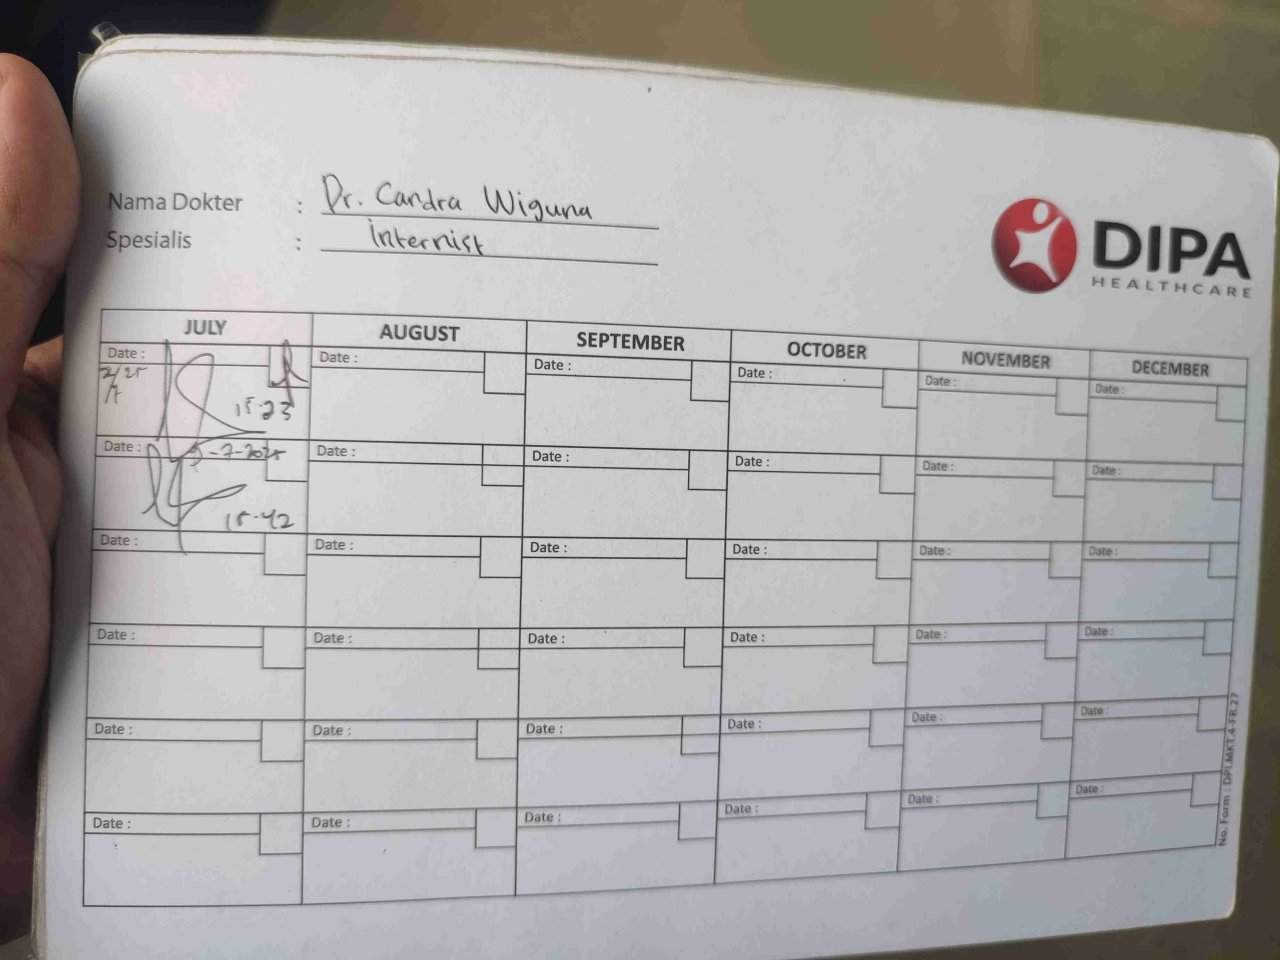 Nama Dokter : Dr. Candra Wiguna
Spesialis : Internist
DIPA
HEALTHCARE
JULY AUGUST SEPTEMBER OCTOBER NOVEMBER DECEMBER
Date : Date : Date : Date : Date : Date :
2/25
7
15-23
Date : -7-2025 Date : Date : Date : Date : Date :
15-42
Date : Date : Date : Date : Date : Date :
Date : Date : Date : Date : Date : Date :
Date : Date : Date : Date : Date : Date :
Date : Date : Date : Date : Date : Date :
No. Form : DPI.MKT.4-FR.27